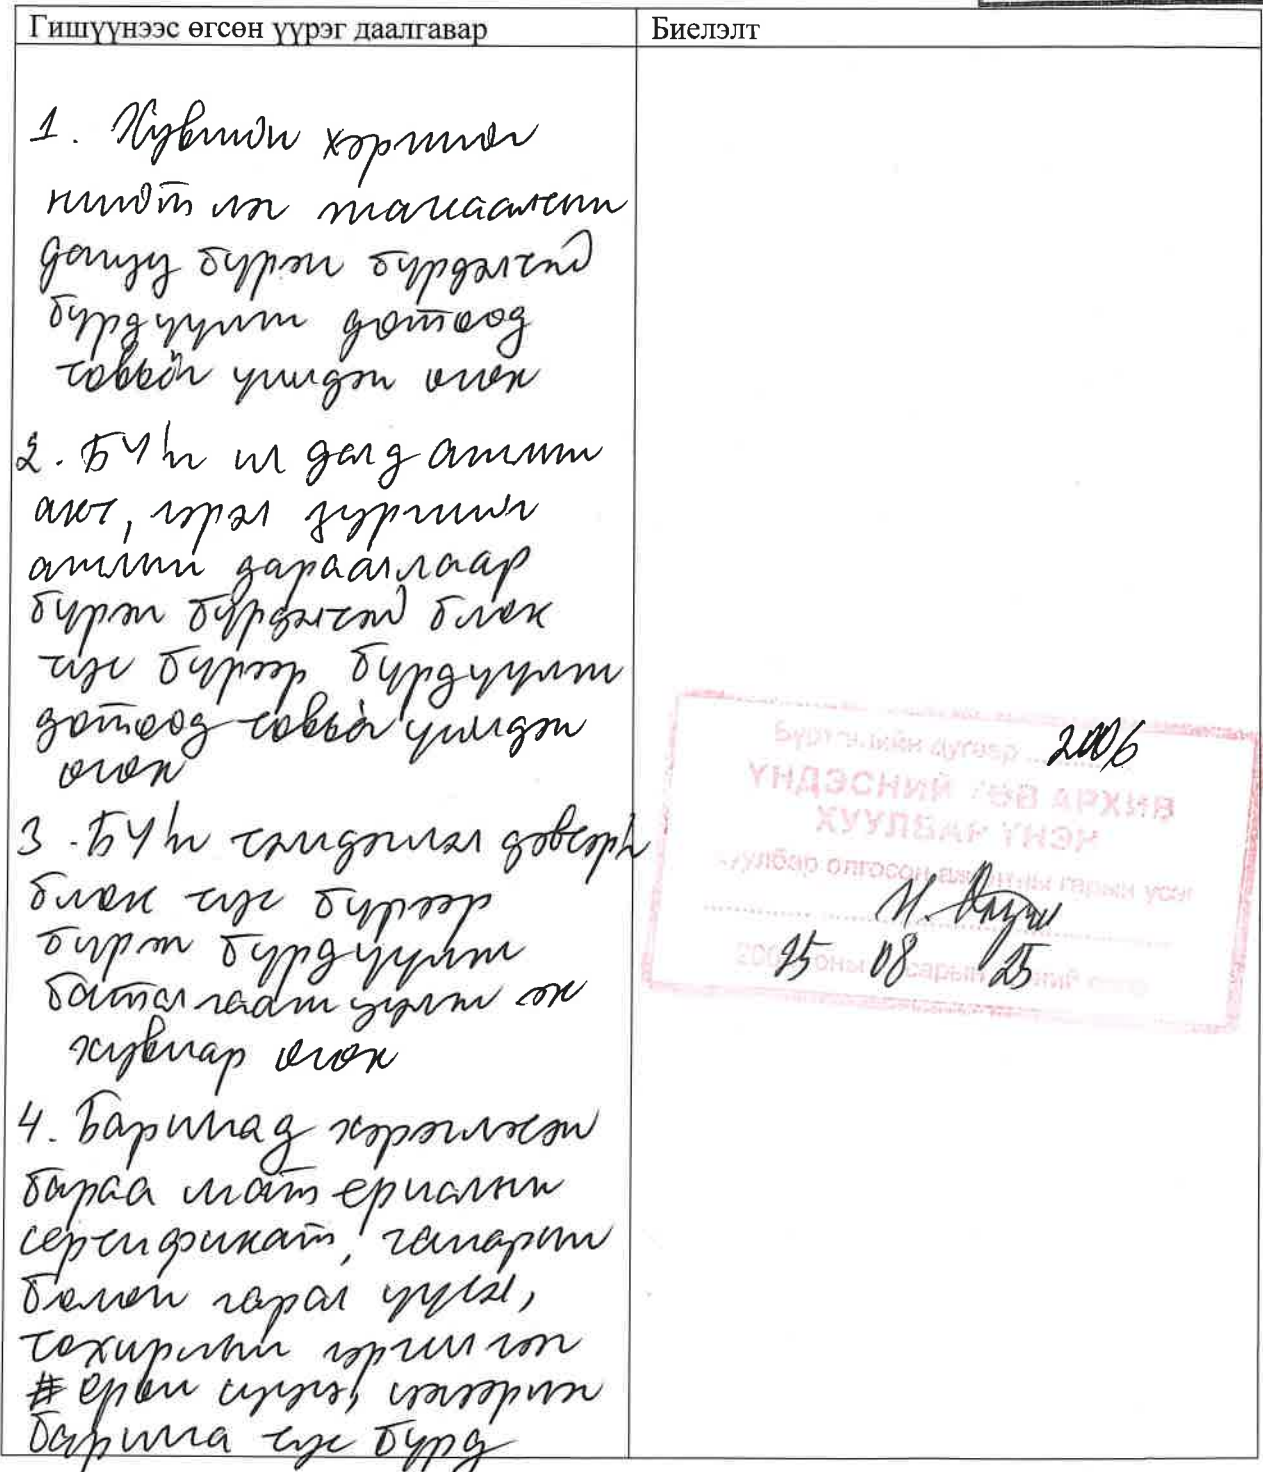 Гишүүнээс өгсөн үүрэг даалгавар
Биелэлт
1. Хувийн хэргийг
жагсаалтын
дагуу бүрэн бүрдэлтэй
бүрдүүлж дотоод
товъёг үйлдэж өгөх
2. БУА-н ил далд ажлын
акт, гэрэл зургийг
ажлын дарааллаар
бүрэн бүрдэлтэй блок
тус бүрээр бүрдүүлж
дотоод товъёг үйлдэж
өгөх
3. тэмдэглэл дэвтэр
блок тус бүрээр
бүрэн бүрдүүлж
баталгаажуулж эх
хувиар өгөх
4. Барилгад хэрэглэсэн
бараа материалын
сертификат, чанарын
болон гарал үүсэл,
тохирлын гэрчилгээ
ерөнхий
барилга тус бүрд
Бүртгэлийн дугаар 2006
ҮНДЭСНИЙ ТӨВ АРХИВ
ХУУЛБАР ҮНЭН
Хуулбар олгосон ажилтны гарын үсэг
200 25 оны 08 сарын 25